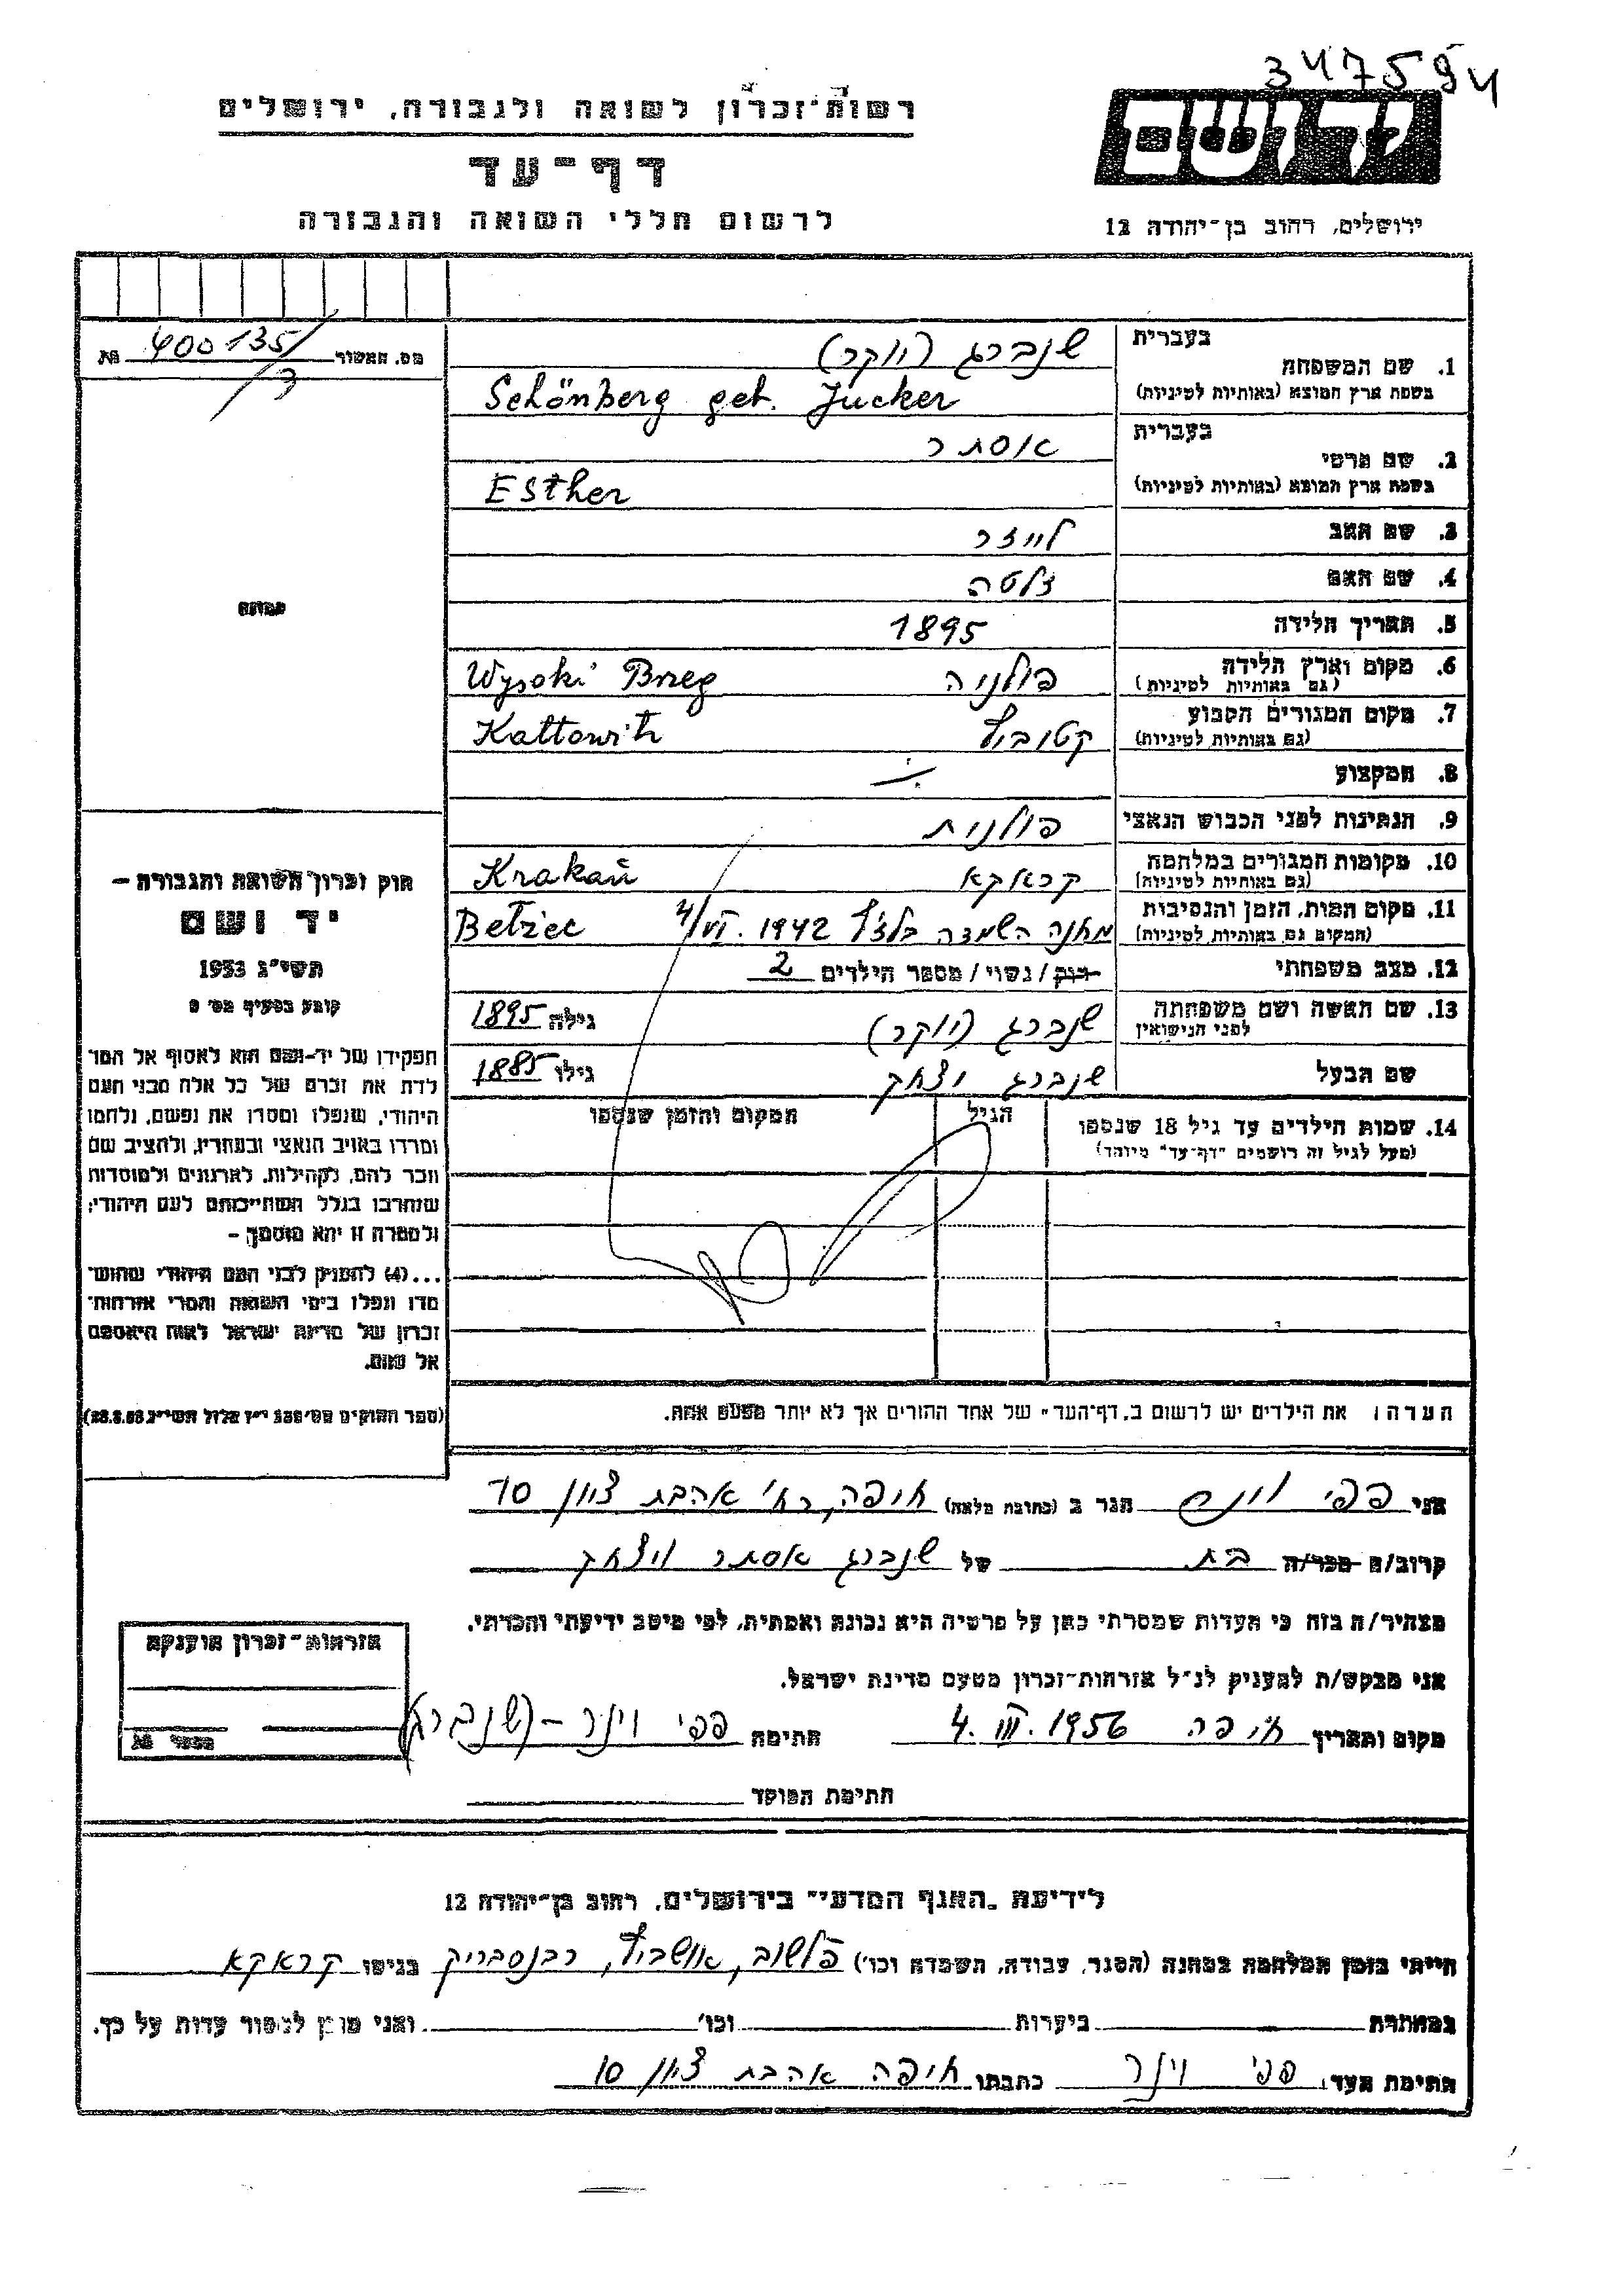 347594
רשות-זכרון לשואה ולגבורה, ירושלים
יד ושם
דף-עד
לרשום חללי השואה והגבורה
ירושלים, רחוב בן-יהודה 12
מס. האשור 400135/
בעברית
1. שם המשפחה שנברג (יוקר)
בשפת ארץ המוצא (באותיות לטיניות) Schönberg geb. Jucker
בעברית
2. שם פרטי אסתר
בשפת ארץ המוצא (באותיות לטיניות) Esther
3. שם האב לייזר
4. שם האם זלטה
5. תאריך הלידה 1895
6. מקום וארץ הלידה פולניה Wysoki Brzeg
(גם באותיות לטיניות)
7. מקום המגורים הקבוע קטוביץ Kattowitz
(גם באותיות לטיניות)
8. המקצוע
9. הנתינות לפני הכבוש הנאצי פולנית
10. מקומות המגורים במלחמה קראקא Krakau
(גם באותיות לטיניות)
11. מקום המות, הזמן והנסיבות מחנה השמדה בלז'ץ 4/VI. 1942 Bełżec
(המקום גם באותיות לטיניות)
12. מצב משפחתי רוק / נשוי / מספר הילדים 2
13. שם האשה ושם משפחתה שנברג (יוקר) גילה 1895
לפני הנישואין
שם הבעל שנברג יצחק גילו 1885
14. שמות הילדים עד גיל 18 שנספו הגיל המקום והזמן שנספו
(מעל לגיל זה רושמים "דף-עד" מיוחד)
תמונה
חוק זכרון השואה והגבורה –
יד ושם
תשי"ג 1953
קובע בסעיף מס' 2
תפקידו של יד-ושם הוא לאסוף אל המו
לדת את זכרם של כל אלה מבני העם
היהודי, שנפלו ומסרו את נפשם, נלחמו
ומרדו באויב הנאצי ובעוזריו, ולהציב שם
וזכר להם, לקהילות, לארגונים ולמוסדות
שנחרבו בגלל השתייכותם לעם היהודי;
ולמטרה זו יהא מוסמך –
...(4) להעניק לבני העם היהודי שהוש-
מדו ונפלו בימי השואה והמרי אזרחות-
זכרון של מדינת ישראל לאות היאספם
אל עמם.
(ספר החוקים מס' 132 י"ז אלול תשי"ג 28.8.53)
הערה: את הילדים יש לרשום ב"דף-העד" של אחד ההורים אך לא יותר מפעם אחת.
אני פפי וינר הגר ב (כתובת מלאה) חיפה, רח' אהבת ציון 10
קרוב/ה מכר/ה בת של שנברג אסתר ויצחק
מצהיר/ה בזה כי העדות שמסרתי כאן על פרטיה היא נכונה ואמתית, לפי מיטב ידיעתי והכרתי.
אני מבקש/ת להעניק לנ"ל אזרחות-זכרון מטעם מדינת ישראל.
מקום ותאריך חיפה 4. III. 1956 חתימה פפי וינר – (שנברג)
חתימת הפוקד
אזרחות-זכרון הוענקה
מספר
לידיעת "האגף המדעי" בירושלים, רחוב בן-יהודה 12
הייתי בזמן המלחמה במחנה (הסגר, עבודה, השמדה וכו') פלשוב, אושביץ, רבנסבריק בגיטו קראקא
במחתרת ביערות וכו' ואני מוכן למסור עדות על כך.
חתימת העד: פפי וינר כתבתו חיפה אהבת ציון 10